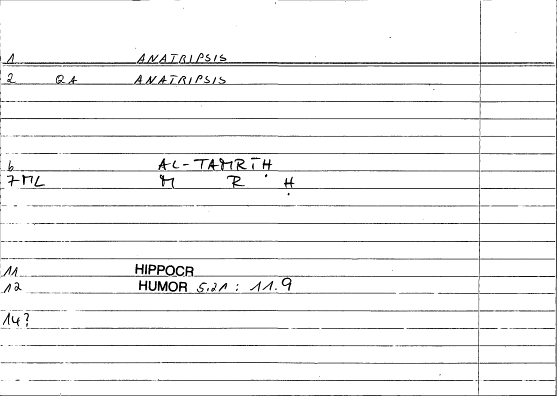 1 ANATRIPSIS
2 QA ANATRIPSIS
6 AL-TAMRĪḤ
7ML M R Ḥ
11 HIPPOCR
12 HUMOR 5,21 : 11.9
14?